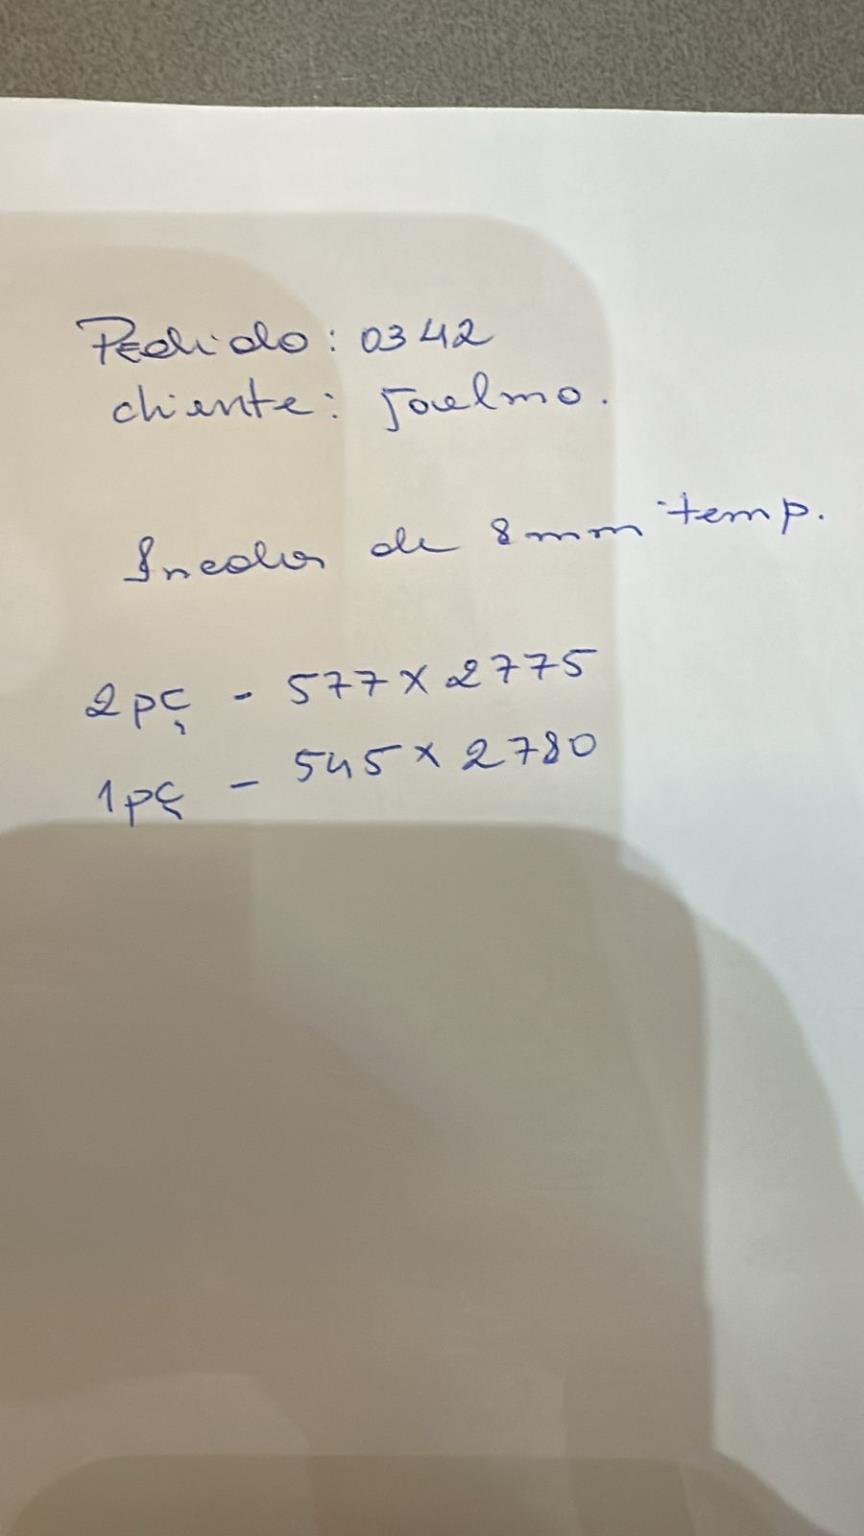 Pedido: 0342
cliente: Joelmo.
Incolor de 8mm temp.
2pç - 577 x 2775
1pç - 545 x 2780